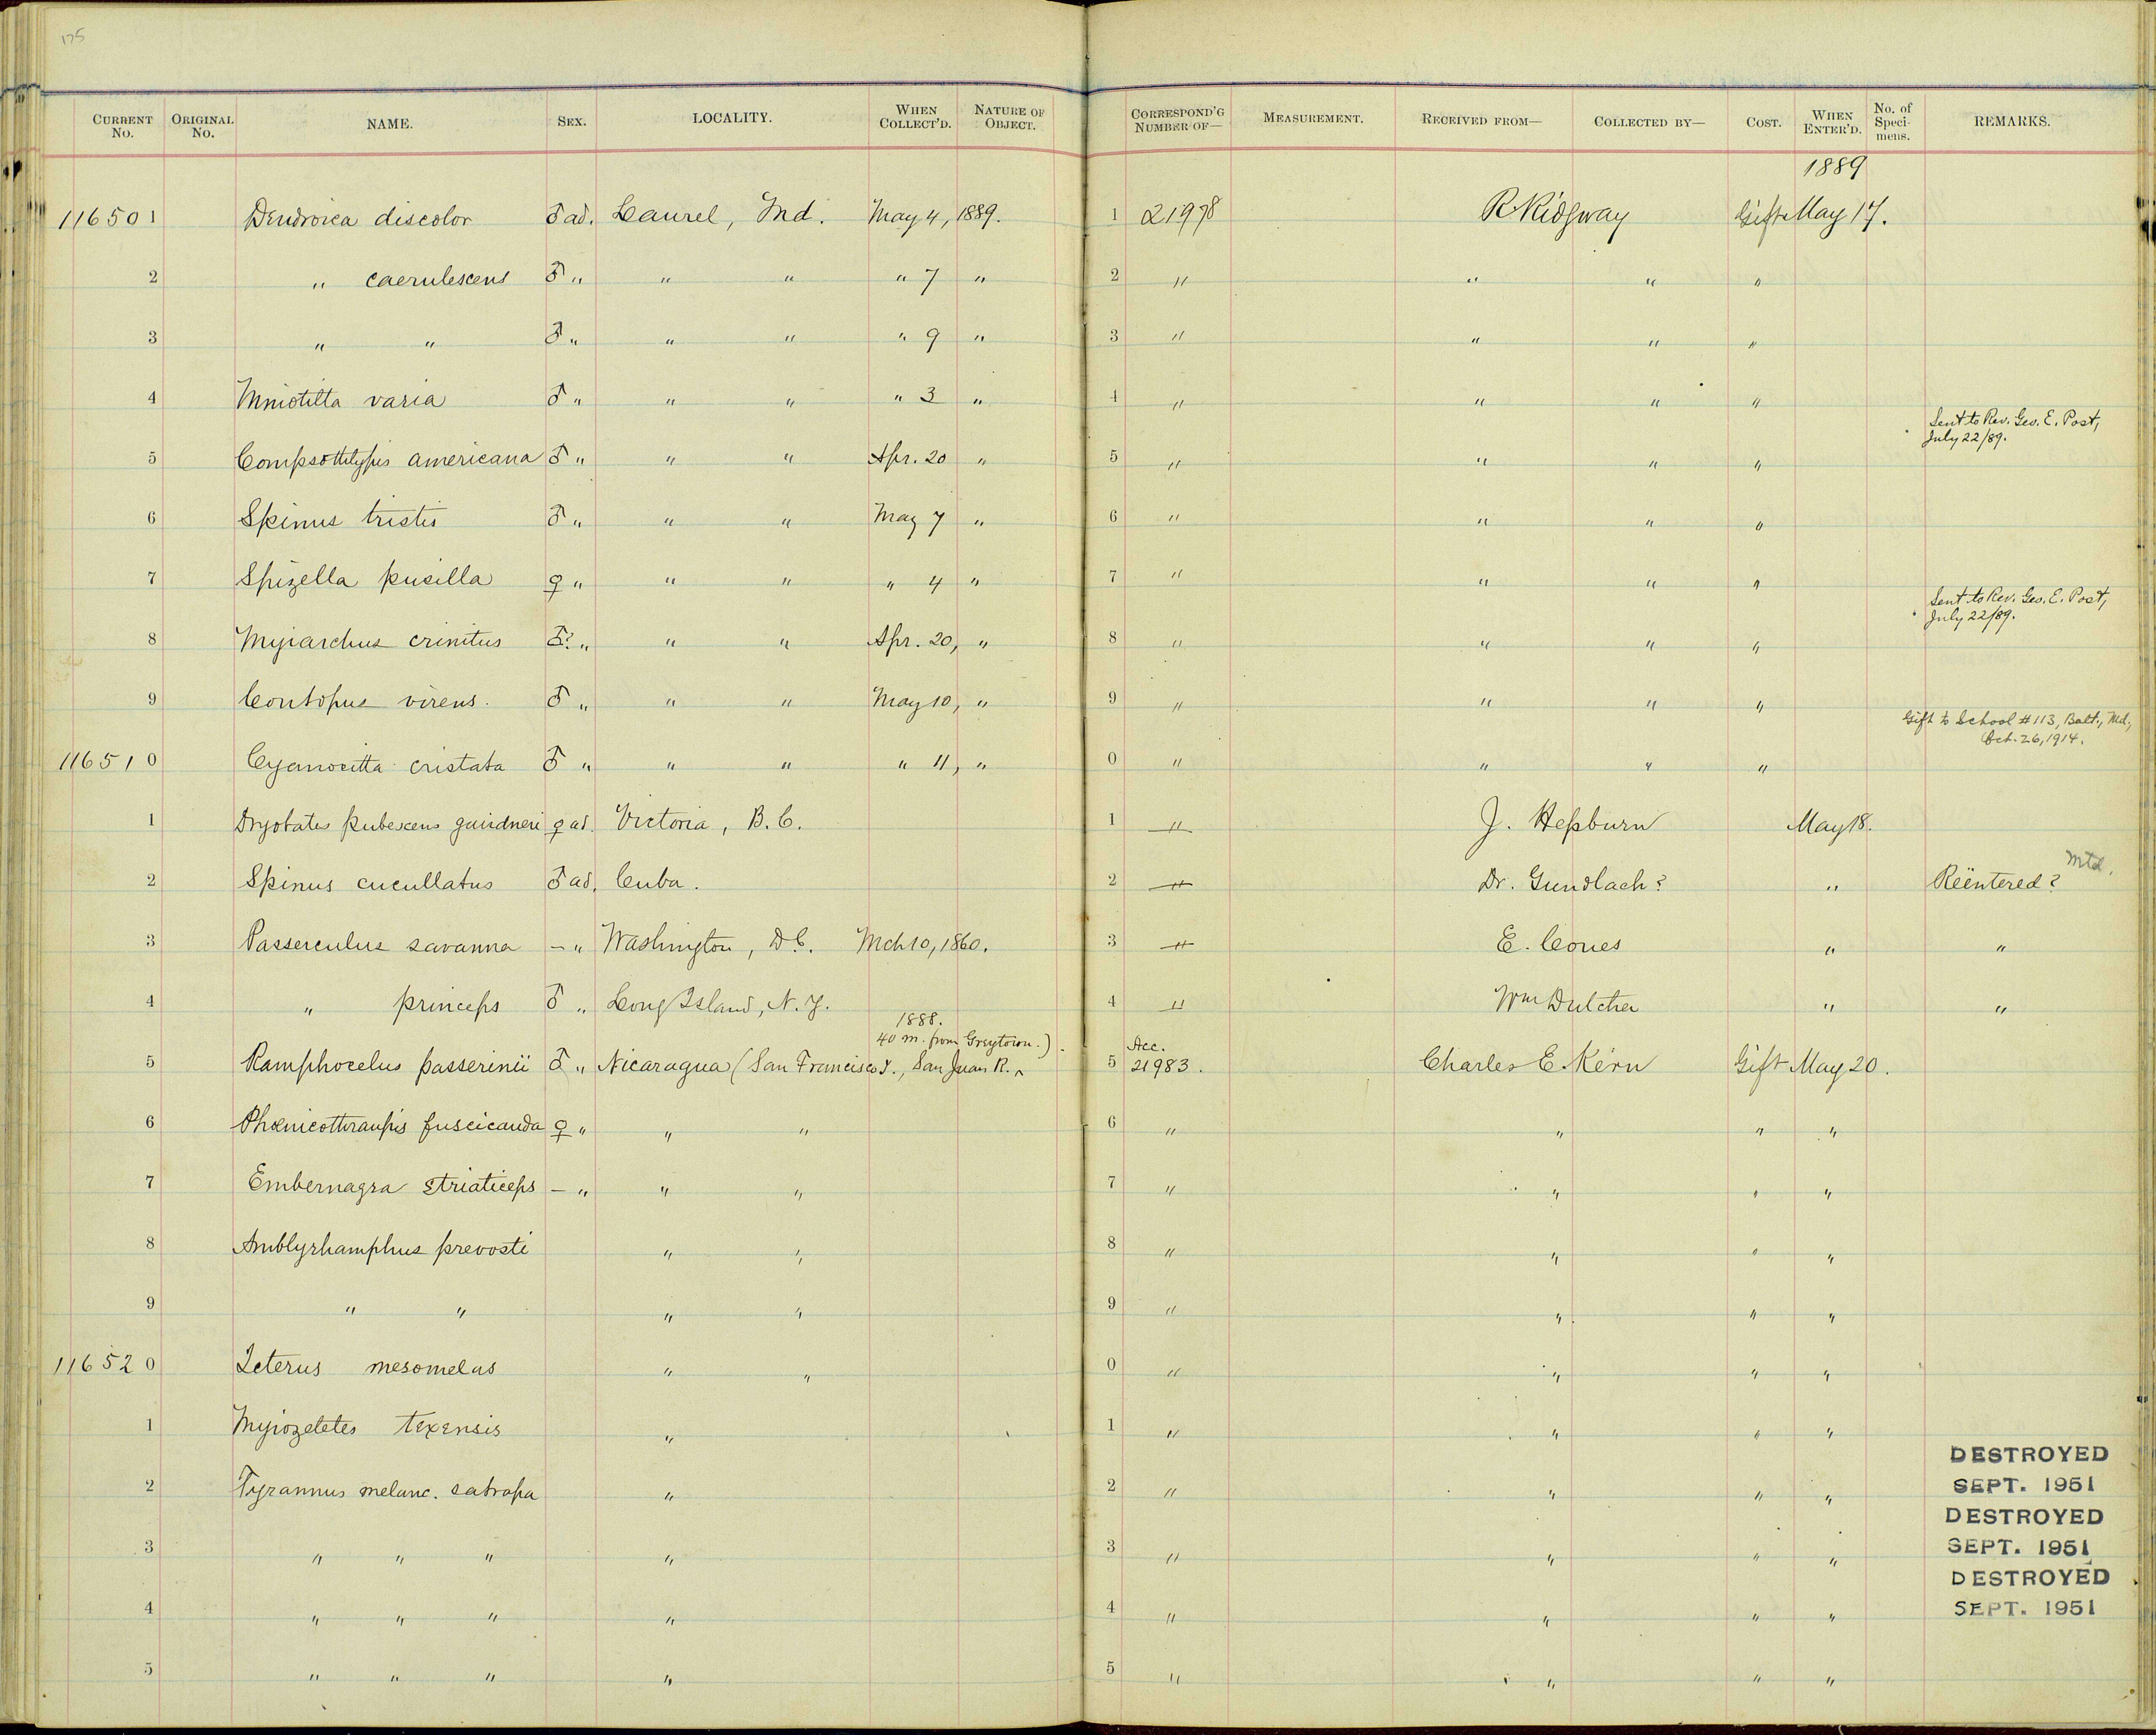 175
CURRENT No. ORIGINAL No. NAME. SEX. LOCALITY. WHEN COLLECT'D. NATURE OF OBJECT. CORRESPOND'G NUMBER OF— MEASUREMENT. RECEIVED FROM— COLLECTED BY— COST. WHEN ENTER'D. No. of Speci-mens. REMARKS.
1889
116501 Dendroica discolor ♂ ad. Laurel, Md. May 4, 1889. 1 21978 R Ridgway Gift May 17.
2 " caerulescens ♂ " " " " 7 " 2 " " " "
3 " " ♂ " " " " 9 " 3 " " " "
4 Mniotilta varia ♂ " " " " 3 " 4 " " " "
Sent to Rev. Geo. E. Post,
July 22/89.
5 Compsothlypis americana ♂ " " " Apr. 20 " 5 " " " "
6 Spinus tristis ♂ " " " May 7 " 6 " " " "
7 Spizella pusilla ♀ " " " " 4 " 7 " " " "
Sent to Rev. Geo. E. Post,
July 22/89.
8 Myiarchus crinitus ♂? " " " Apr. 20, " 8 " " " "
9 Contopus virens. ♂ " " " May 10, " 9 " " " "
Gift to School #113, Balt., Md.,
Oct. 26, 1914.
116510 Cyanocitta cristata ♂ " " " " 11, " 0 " " " "
1 Dryobates pubescens gairdneri ♀ ad. Victoria, B.C. 1 " J. Hepburn May 18.
2 Spinus cucullatus ♂ ad. Cuba. 2 " Dr. Gundlach? " Reëntered? Mtd.
3 Passerculus savanna – " Washington, D.C. Mch 10, 1860. 3 " E. Coues " "
4 " princeps ♂ " Long Island, N.Y. 4 " Wm Dutcher " "
1888.
40 m. from Greytown.)
5 Ramphocelus passerinii ♂ " Nicaragua (San Francisco I., San Juan R. ^ 5 Acc. 21983. Charles E. Kern Gift May 20.
6 Phœnicothraupis fuscicauda ♀ " " " 6 " " " "
7 Embernagra striaticeps – " " " 7 " " " "
8 Amblyrhamphus prevosti " " 8 " " " "
9 " " " " 9 " " " "
116520 Icterus mesomelas " " 0 " " " "
1 Myiozetetes texensis " 1 " " " "
DESTROYED
2 Tyrannus melanc. satrapa " 2 " " " " SEPT. 1951
DESTROYED
3 " " " " 3 " " " " SEPT. 1951
DESTROYED
4 " " " " 4 " " " " SEPT. 1951
5 " " " " 5 " " " "